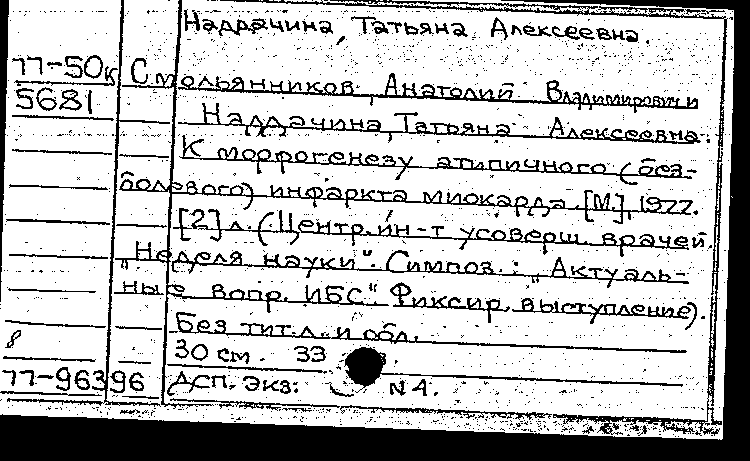 Наддачина, Татьяна Алексеевна.
77-50к Смольянников, Анатолий Владимирович и
5681 Наддачина, Татьяна Алексеевна.
К морфогенезу атипичного (без-
болевого) инфаркта миокарда. [М.], 1977.
[2] л. (Центр. ин-т усоверш. врачей.
"Неделя науки". Симпоз.: "Актуаль-
ные вопр. ИБС". Фиксир. выступление).
Без тит. л. и обл.
8 30 см. 33
77-96396 ДСП. Экз: N 4.